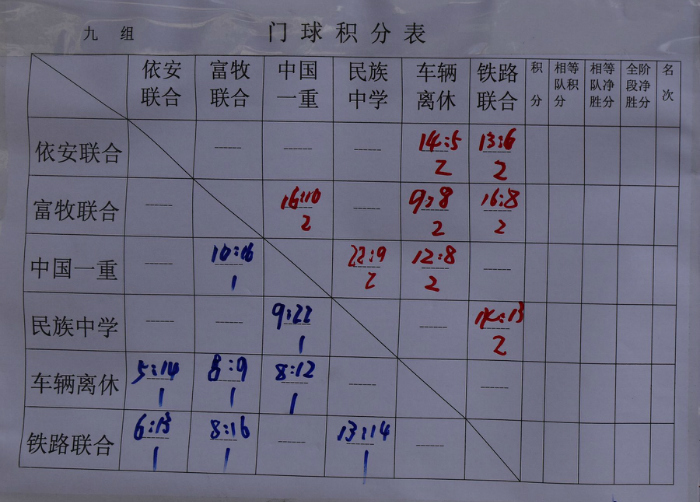 九 组 门球积分表
依安联合 富牧联合 中国一重 民族中学 车辆离休 铁路联合 积分 相等队积分 相等队净胜分 全阶段净胜分 名次
依安联合 14:5 13:6
2 2
富牧联合 16:10 9:8 16:8
2 2 2
中国一重 10:16 22:9 12:8
1 2 2
民族中学 9:22 14:13
1 2
车辆离休 5:14 8:9 8:12
1 1 1
铁路联合 6:13 8:16 13:14
1 1 1